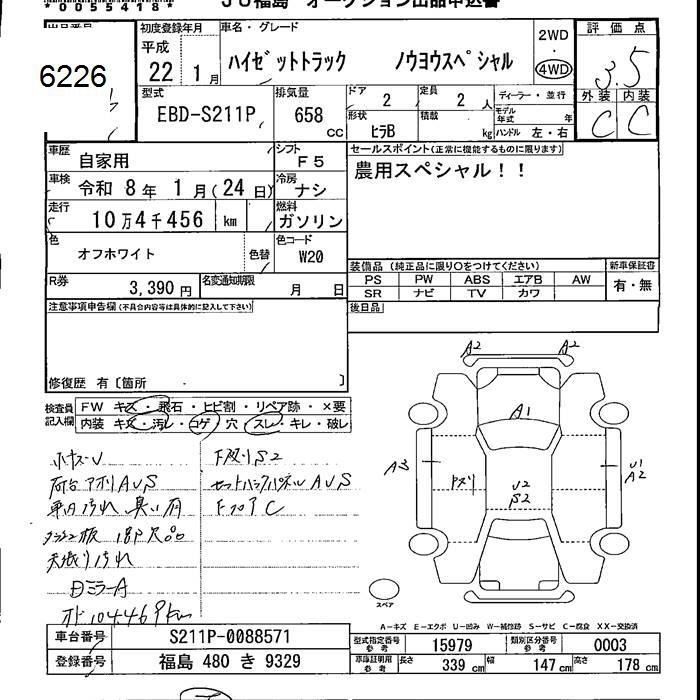 *0055418*
JU福島 オークション出品申込書
出品番号
6226
初度登録年月
平成
22 1月
車名・グレード
ハイゼットトラック ノウヨウスペシャル
2WD
・
4WD
評価点
3.5
型式
EBD-S211P
排気量
658
cc
ドア
2
定員
2 人
形状
ヒラB
積載
kg
ディーラー・並行
モデル年式 年
ハンドル 左・右
外装 内装
C C
車歴
自家用
シフト
F5
セールスポイント(正常に機能するものに限ります)
農用スペシャル!!
車検
令和 8年 1月(24日)
冷房
ナシ
走行
10万4千456 km
燃料
ガソリン
色
オフホワイト
色替
色コード
W20
装備品(純正品に限り○をつけてください)
新車保証書
PS PW ABS エアB AW
有・無
SR ナビ TV カワ
R券
3,390円
名変通知期限
月 日
注意事項申告欄(不具合内容等は具体的に記入して下さい)
後日品
修復歴 有〔箇所 〕
検査員記入欄
FW キズ・飛石・ヒビ割・リペア跡・×要
内装 キズ・汚レ・コゲ・穴・スレ・キレ・破レ
小キズU
荷台アオリAUS
車内汚れ 臭い有
天張り汚れ
日ミラーA
オド104469km
F廻りS2
セットバックパネルAUS
FフロアC
A2 A2
A1
A3
U2
S2
U1
A2
スペア
A-キズ E-エクボ U-凹み W-補修跡 S-サビ C-腐食 XX-交換済
車台番号
S211P-0088571
型式指定番号 参考
15979
類別区分番号 参考
0003
登録番号
福島 480 き 9329
車庫証明用 参考
長さ 339 cm
幅 147 cm
高さ 178 cm